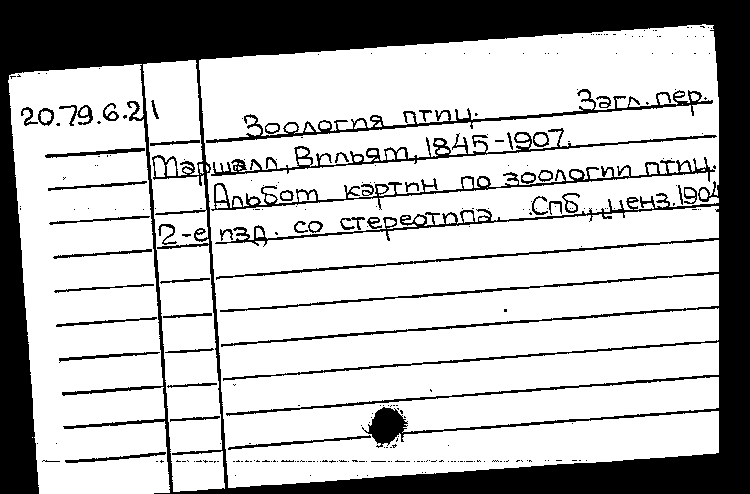 20.79.6.21
Зоология птиц. Загл. пер.
Маршалл, Вильям, 1845-1907.
Альбом картин по зоологии птиц.
2-е изд. со стереотипа. Спб., ценз. 1904